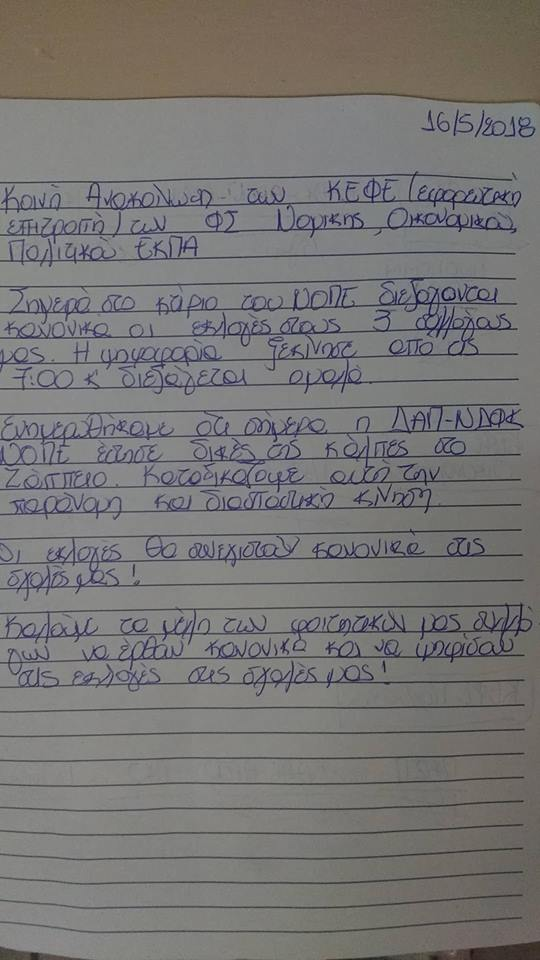 16/5/2018
Κοινή Ανακοίνωση των ΚΕΦΕ (εφορευτική
επιτροπή) των ΦΣ Νομικής, Οικονομικό,
Πολιτικό ΕΚΠΑ
Σήμερα στο κτίριο του ΝΟΠΕ διεξάγονται
κανονικά οι εκλογές στους 3 συλλόγους
μας. Η ψηφοφορία ξεκίνησε από τις
7:00 κ διεξάγεται ομαλά.
Ενημερωθήκαμε ότι σήμερα η ΔΑΠ-ΝΔΦΚ
ΝΟΠΕ έστησε δικές της κάλπες στο
Ζάππειο. Καταδικάζουμε αυτή την
παράνομη και διασπαστική κίνηση.
Οι εκλογές θα συνεχιστούν κανονικά στις
σχολές μας!
Καλούμε τα μέλη των φοιτητικών μας συλλό
γων να έρθουν κανονικά και να ψηφίσουν
στις εκλογές στις σχολές μας!